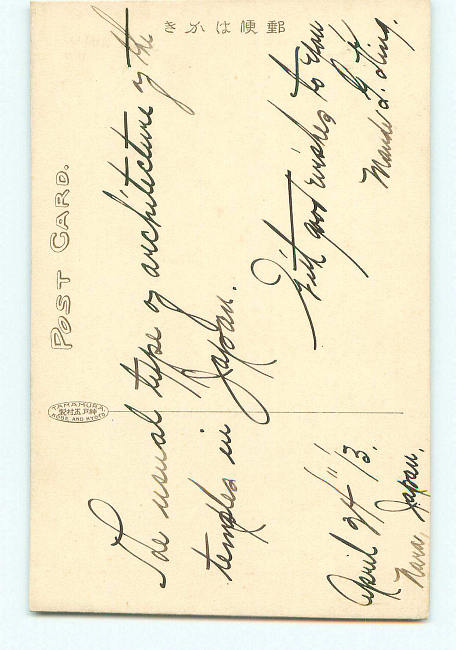 郵便はかき
POST CARD.
TAMAMURA
神戸玉村製
KOBE AND KYOTO
The usual type of architecture of the
temples in Japan.
With good wishes to you
April 24" '13.
Nara, Japan.